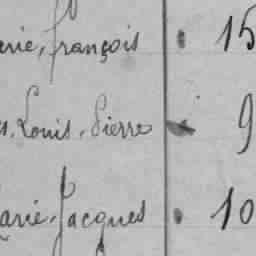 erie, françois 15
s, Louis, Pierre 9
arie, Jacques 10